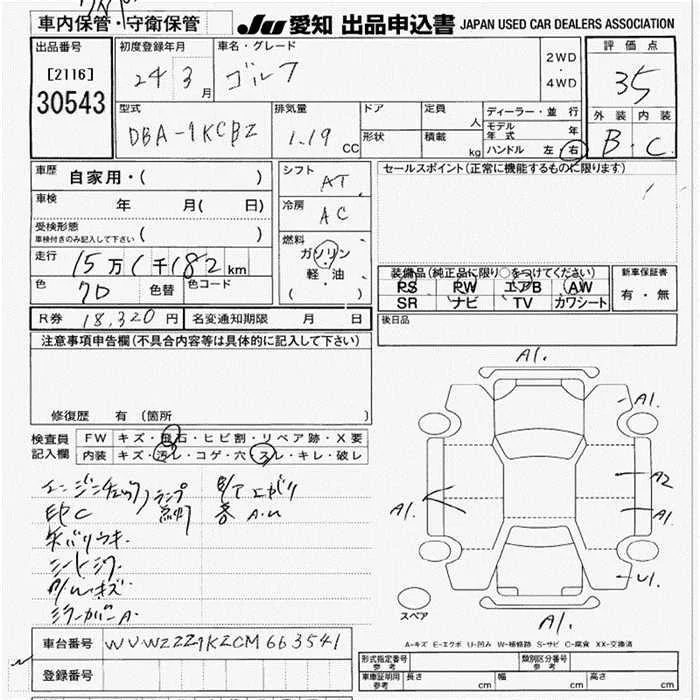 車内保管・守衛保管
JU 愛知 出品申込書 JAPAN USED CAR DEALERS ASSOCIATION
出品番号
[2116]
30543
初度登録年月
24 3 月
車名・グレード
ゴルフ
2WD
・
4WD
評価点
35
外装 内装
B・C
型式
DBA-1KCBZ
排気量
1.19 CC
ドア
形状
定員 人
積載 kg
ディーラー・並行
モデル年式 年
ハンドル 左 右
車歴 自家用・( )
車検 年 月( 日)
受検形態
車検付きのみ記入して下さい
走行 15万1千182km
色 7D 色替 色コード
シフト AT
冷房 AC
燃料
ガソリン
軽・油
( )
セールスポイント(正常に機能するものに限ります)
装備品(純正品に限り○をつけてください)
PS PW エアB AW
SR ナビ TV カワシート
新車保証書
有・無
後日品
R券 18,320円 名変通知期限 月 日
注意事項申告欄(不具合内容等は具体的に記入して下さい)
修復歴 有 (箇所 )
検査員記入欄
FW キズ・飛石・ヒビ割・リペア跡・X要
内装 キズ・汚レ・コゲ・穴・スレ・キレ・破レ
エンジンチェックランプ
シートシワ
ミラーカバーA.
A1.
A1.
A2
A1.
A1.
U1.
A1.
スペア
A-キズ E-エクボ U-凹み W-補修跡 S-サビ C-腐食 XX-交換済
車台番号 WVWZZZ1KZCM663541
登録番号
形式指定番号 参考
類別区分番号 参考
車庫証明用 参考
長さ cm 幅 cm 高さ cm